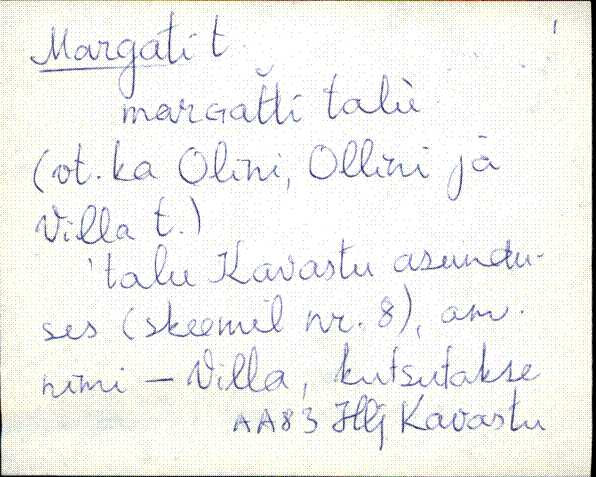 Margati t.
margat̆ti talu̇
(vt. ka Olini, Ollini jä
Villa t.)
'talu Kavastu asundu-
ses (skeemil nr. 8), am.
nimi – Villa, kutsutakse
AA83 Hlj Kavastu